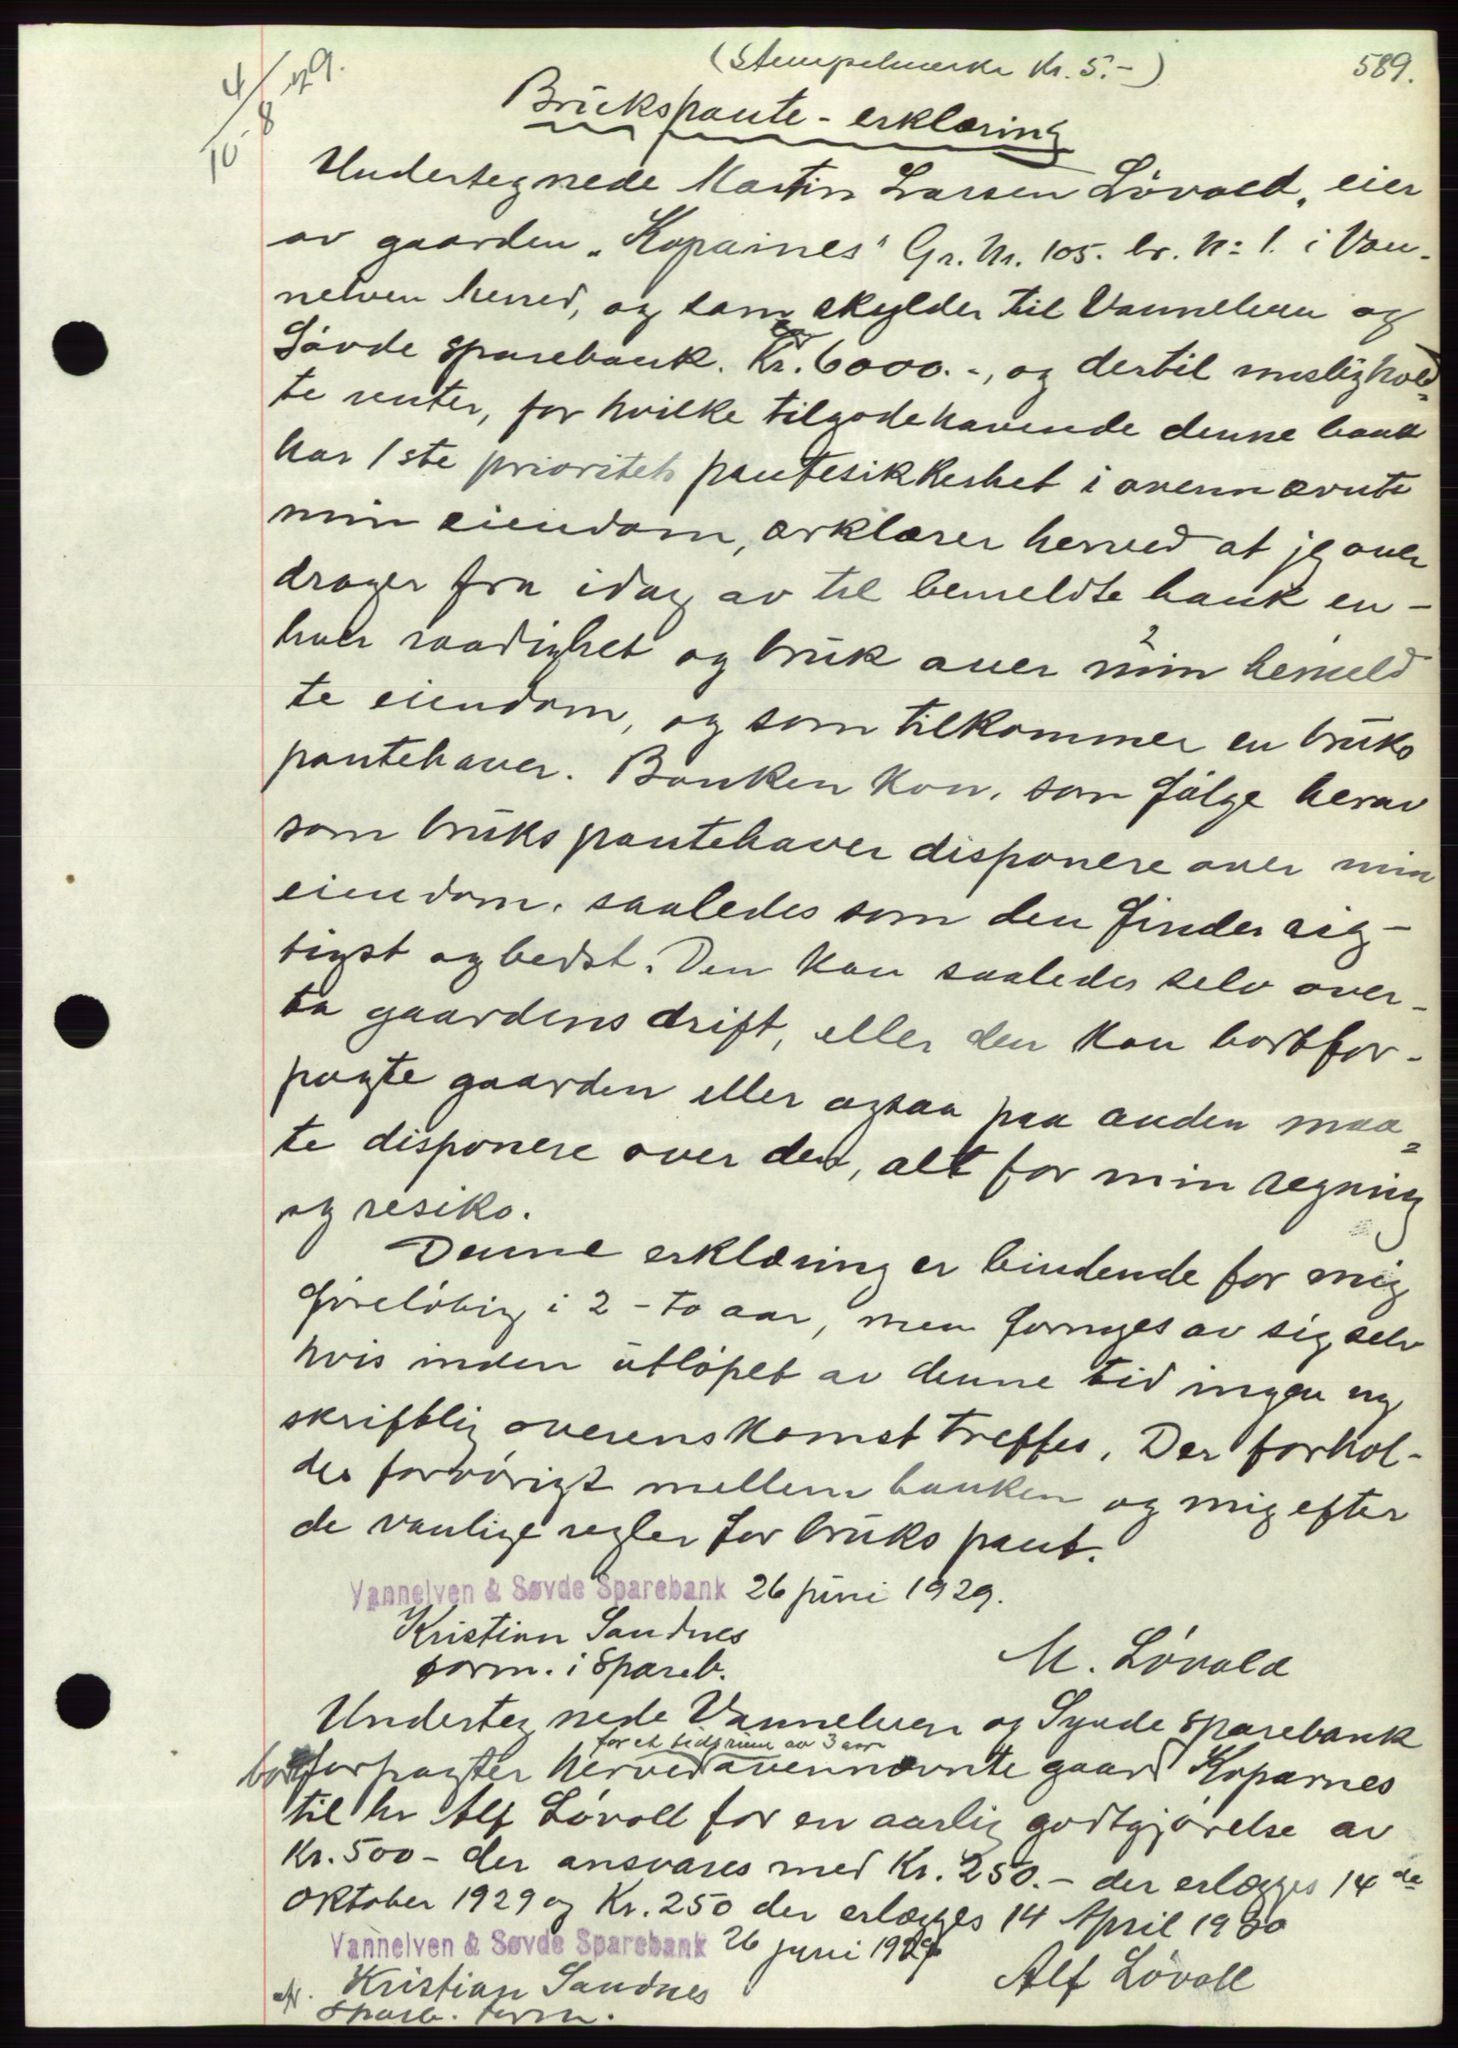 (Stempelmerke Kr. 5.-)
589.
10/4-8-29.
Brukspante-erklæring
Undertegnede Martin Larsen Løvold, eier
av gaarden "Koparnes" Gr. Nr. 105. br. Nº 1. i Van-
nelven herred, og som skylder til Vannelven og
Søvde sparebank. Kr. 6000.-, og dertil mislighold-
te renter, for hvilke tilgodehavende denne bank
har 1ste prioritets pantesikkerhet i ovennævnte
min eiendom, erklærer herved at jeg over
drager fra idag av til bemeldte bank en-
hver raadighet og bruk over min bemeld
te eiendom, og som tilkommer en bruks
pantehaver. Banken kan, som følge herav
som brukspantehaver disponere over min
eiendom, saaledes som den finder rig-
tigst og bedst. Den kan saaledes selv over-
ta gaardens drift, eller den kan bortfor-
pagte gaarden eller ogsaa paa anden maa-
te disponere over den, alt for min regning
og resiko.
Denne erklæring er bindende for mig
foreløbig i 2 - to aar, men fornyes av sig selv
hvis inden utløpet av denne tid ingen ny
skriftlig overenskomst treffes. Der forhol-
des forøvrigt mellem banken og mig efter
de vanlige regler for brukspant.
Vannelven & Søvde Sparebank 26 juni 1929.
Kristian Sandnes
form. i Spareb.
M. Løvold
Undertegnede Vannelven og Syvde sparebank
for et tidsrum av 3 aar
bortforpagter herved ovennævnte gaard Koparnes
til hr Alf Løvoll for en aarlig godtgjørelse av
Kr. 500- der ansvares med Kr. 250.- der erlægges 14de
oktober 1929 og Kr. 250 der erlægges 14 April 1930
Vannelven & Søvde Sparebank 26 juni 1929
Kristian Sandnes
Spareb. form.
Alf Løvoll